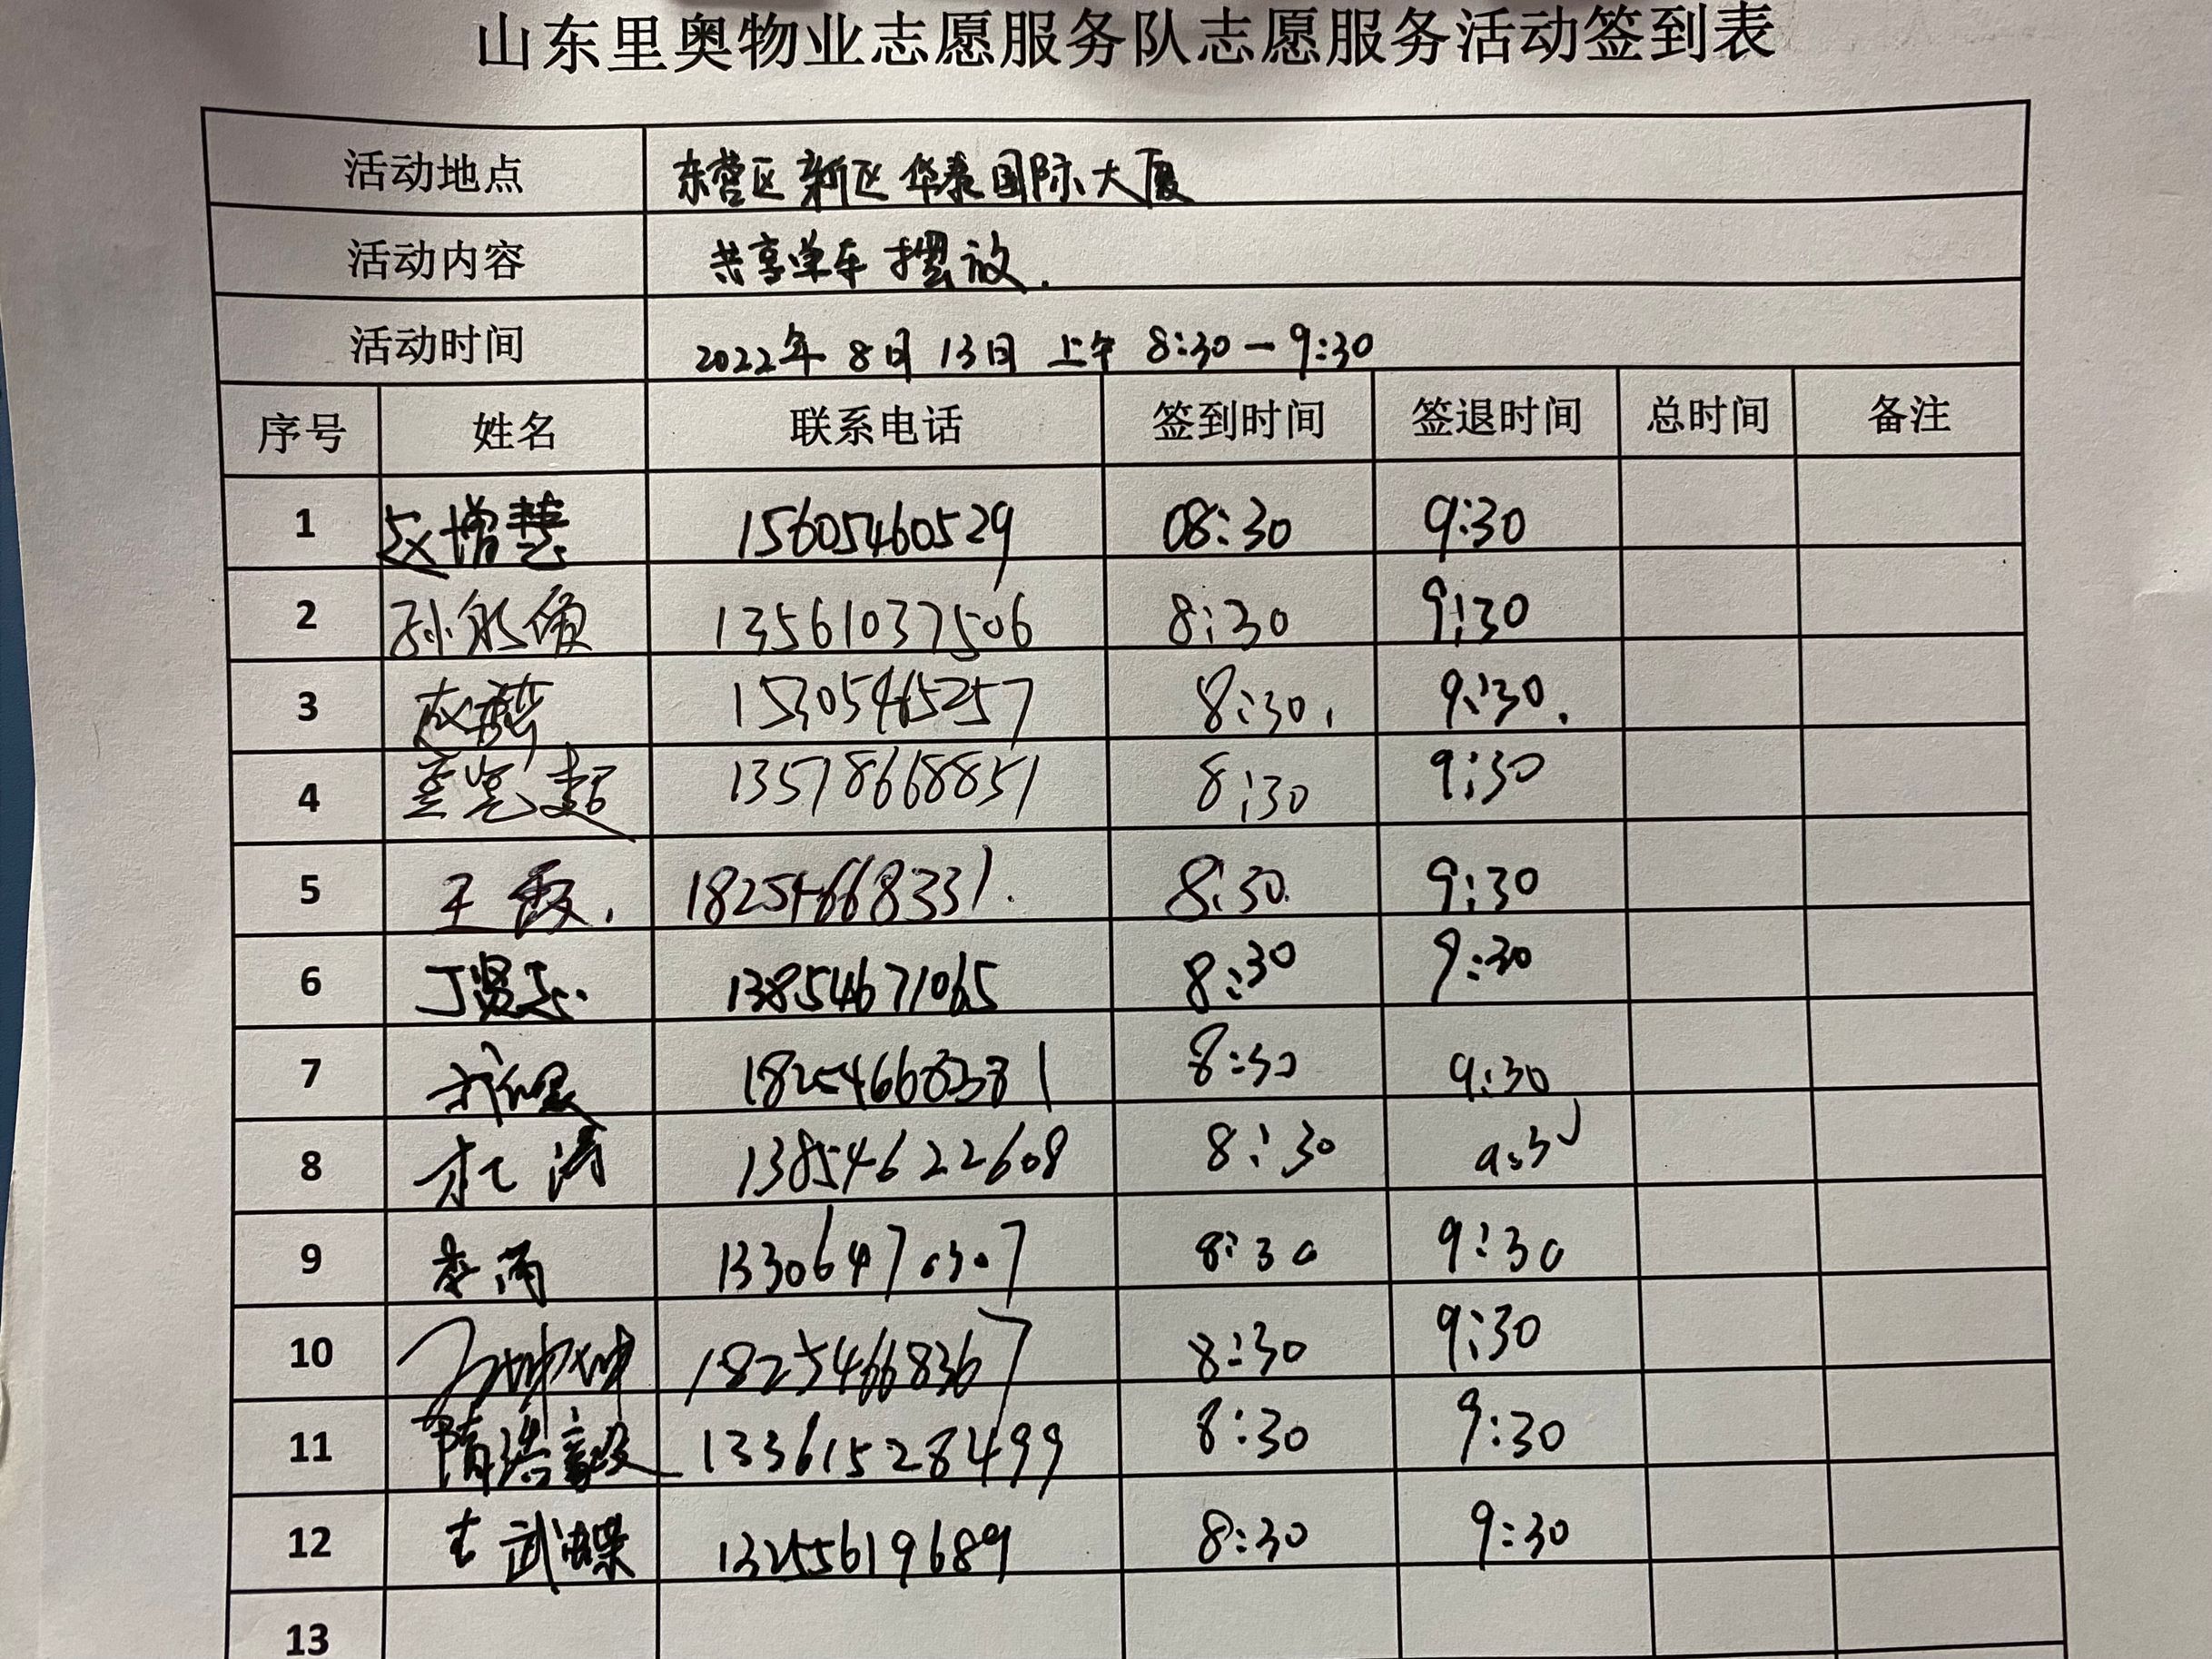 山东里奥物业志愿服务队志愿服务活动签到表
活动地点 东营区新区华泰国际大厦
活动内容 共享单车摆放.
活动时间 2022年8月13日 上午 8:30-9:30
序号 姓名 联系电话 签到时间 签退时间 总时间 备注
1 赵增慧 15605460529 08:30 9:30
2 13561037506 8:30 9:30
3 15305465257 8:30. 9:30.
4 13578668851 8:30 9:30
5 王霞. 18254668331. 8:30. 9:30
6 13854671065 8:30 9:30
7 18254668381 8:30 9:30
8 杜涛 13854622608 8:30 9:30
9 李丙 13306470307 8:30 9:30
10 18254668367 8:30 9:30
11 隋浩毅 13361528499 8:30 9:30
12 13255619689 8:30 9:30
13